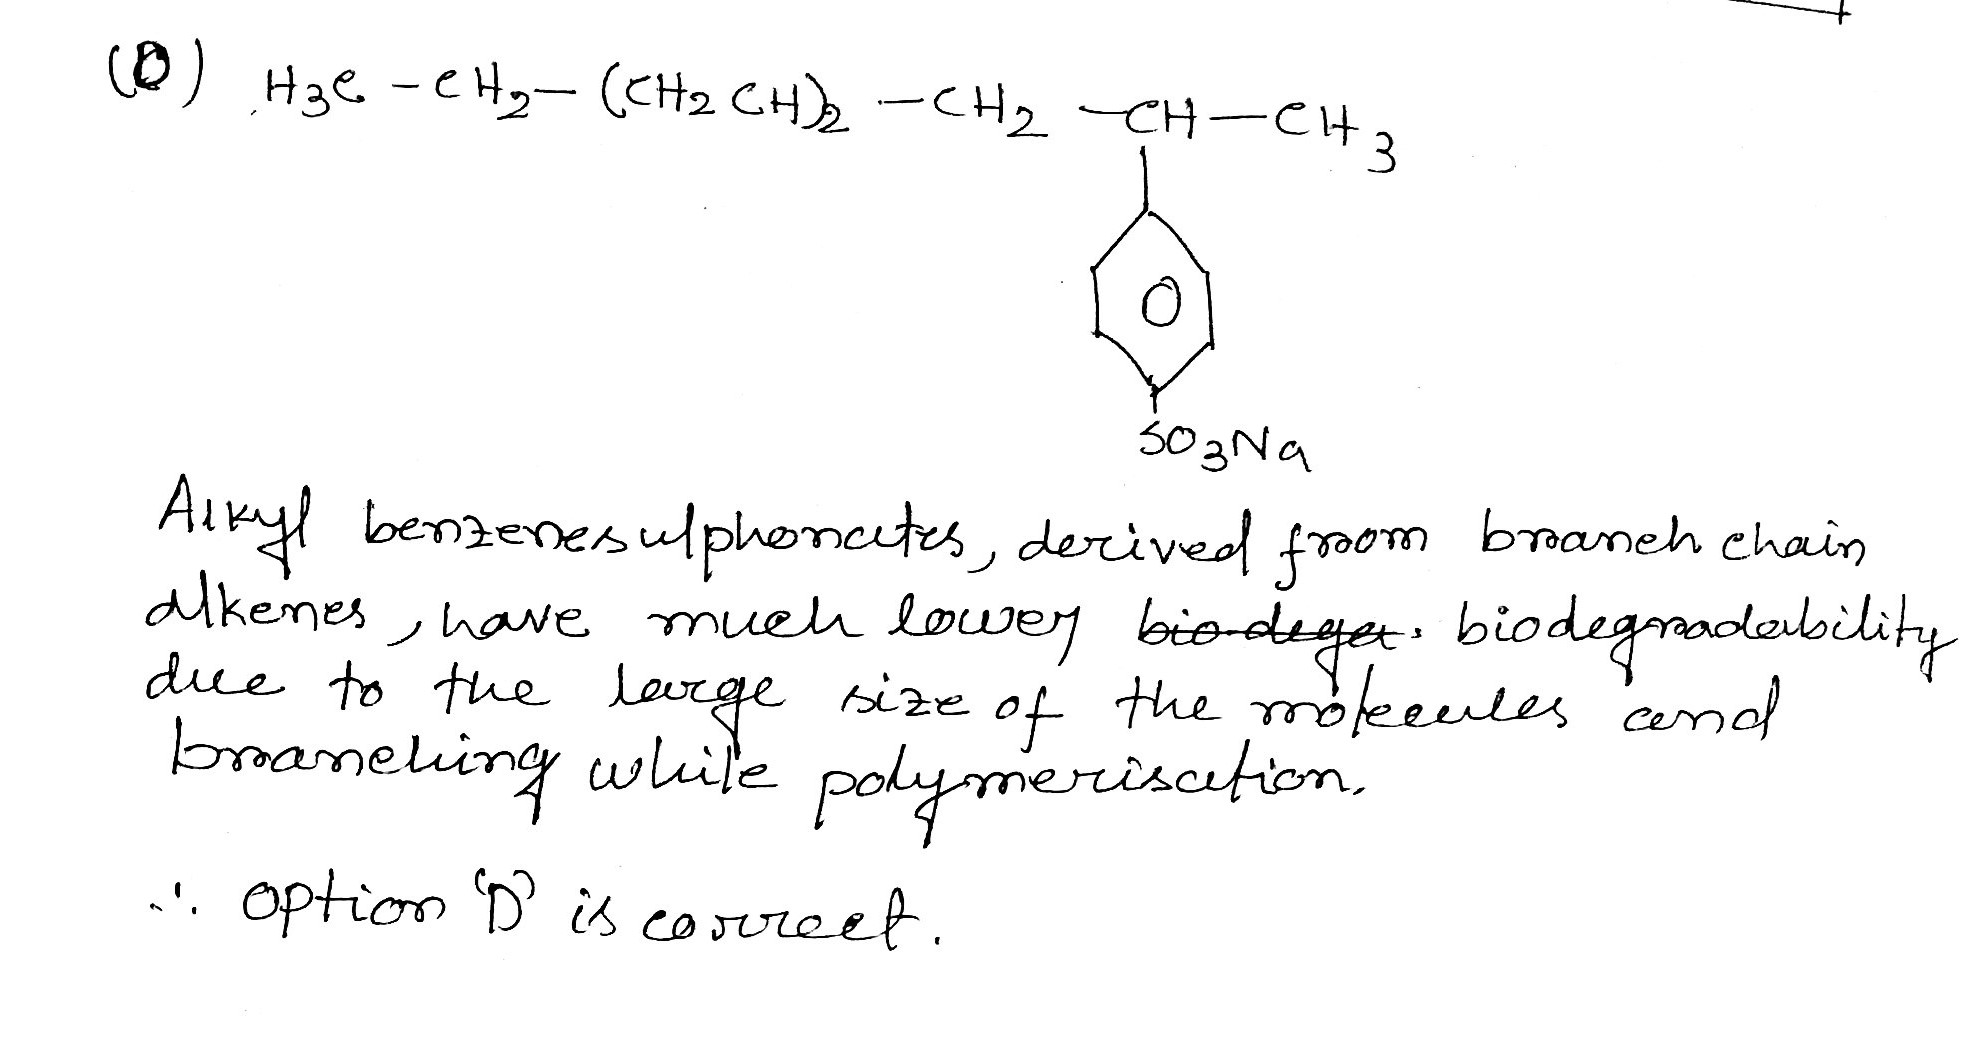 (D) H3C - CH2 - (CH2 CH)2 - CH2 - CH - CH3
SO3Na
Alkyl benzenesulphonates, derived from branch chain
alkenes, have much lower bio-deger. biodegradability
due to the large size of the molecules and
branching while polymerisation.
∴ option 'D' is correct.